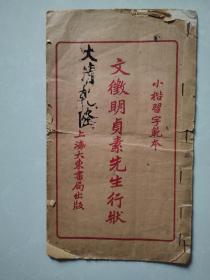 小楷習字範本
文徵明貞素先生行狀
上海大東書局出版
大清乾隆